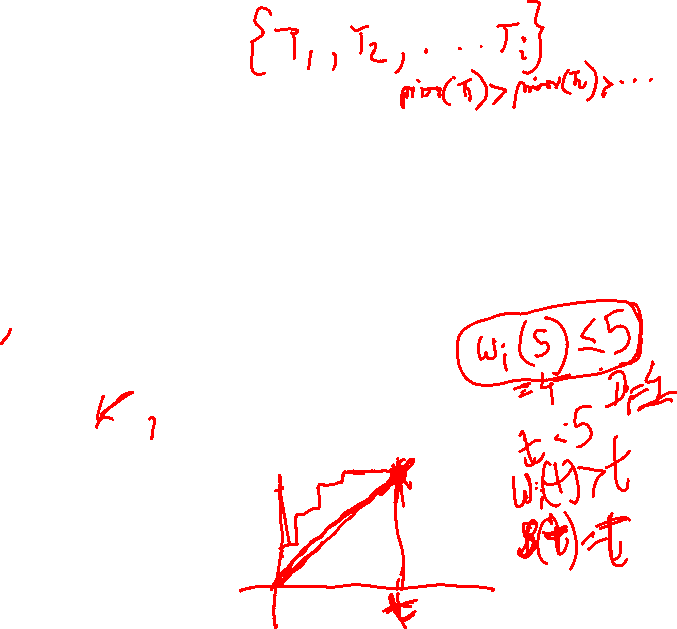 {T1, T2, ... Ti}
prior(T1) > prior(T2) > ...
Wi(5) ≤ 5
= 4
t < 5
Wi(t) > t
(t) = t
t